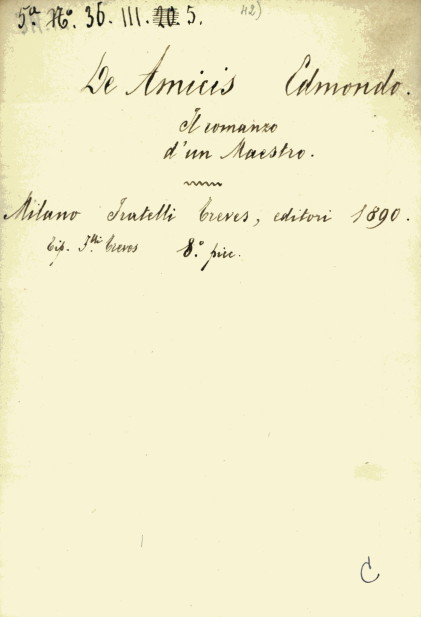 5ª Nº. 36. III. 20 5. 42)
De Amicis Edmondo.
Il romanzo
d'un Maestro.
Milano Fratelli Treves, editori 1890.
Tip. F.lli Treves 8.º picc.
C